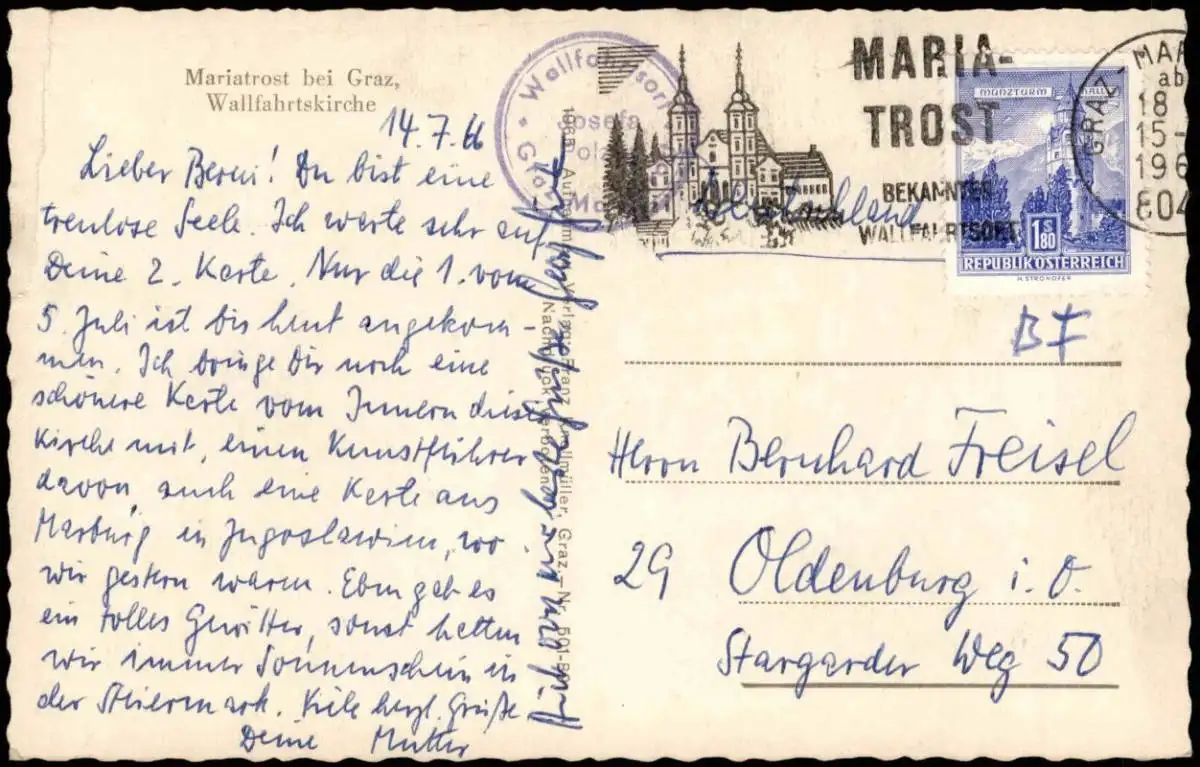 Mariatrost bei Graz,
Wallfahrtskirche
14.7.66
Lieber Berni! Du bist eine
treulose Seele. Ich warte sehr auf
Deine 2. Karte. Nur die 1. vom
5. Juli ist bis heut angekom-
men. Ich bringe Dir noch eine
schönere Karte vom Innern dieser
Kirche mit, einen Kunstführer
davon, auch eine Karte aus
Marburg in Jugoslawien, wo
wir gestern waren. Eben gab es
ein tolles Gewitter, sonst hatten
wir immer Sonnenschein in
der Steiermark. Viele herzl. Grüße
Deine Mutter
Auch von
Grüße
Franz
müller, Graz. – Nr. 501-8
Wallfahrtsort
Josefa
Graz
MARIA-
TROST
BEKANNTER
WALLFAHRTSORT
Deutschland
GRAZ - MAR
ab
18
15-
196
804
MÜNZTURM HALL
1.80 S
REPUBLIK ÖSTERREICH
H. STROHOFER
BF
Herrn Bernhard Freisel
29 Oldenburg i. O.
Stargarder Weg 50